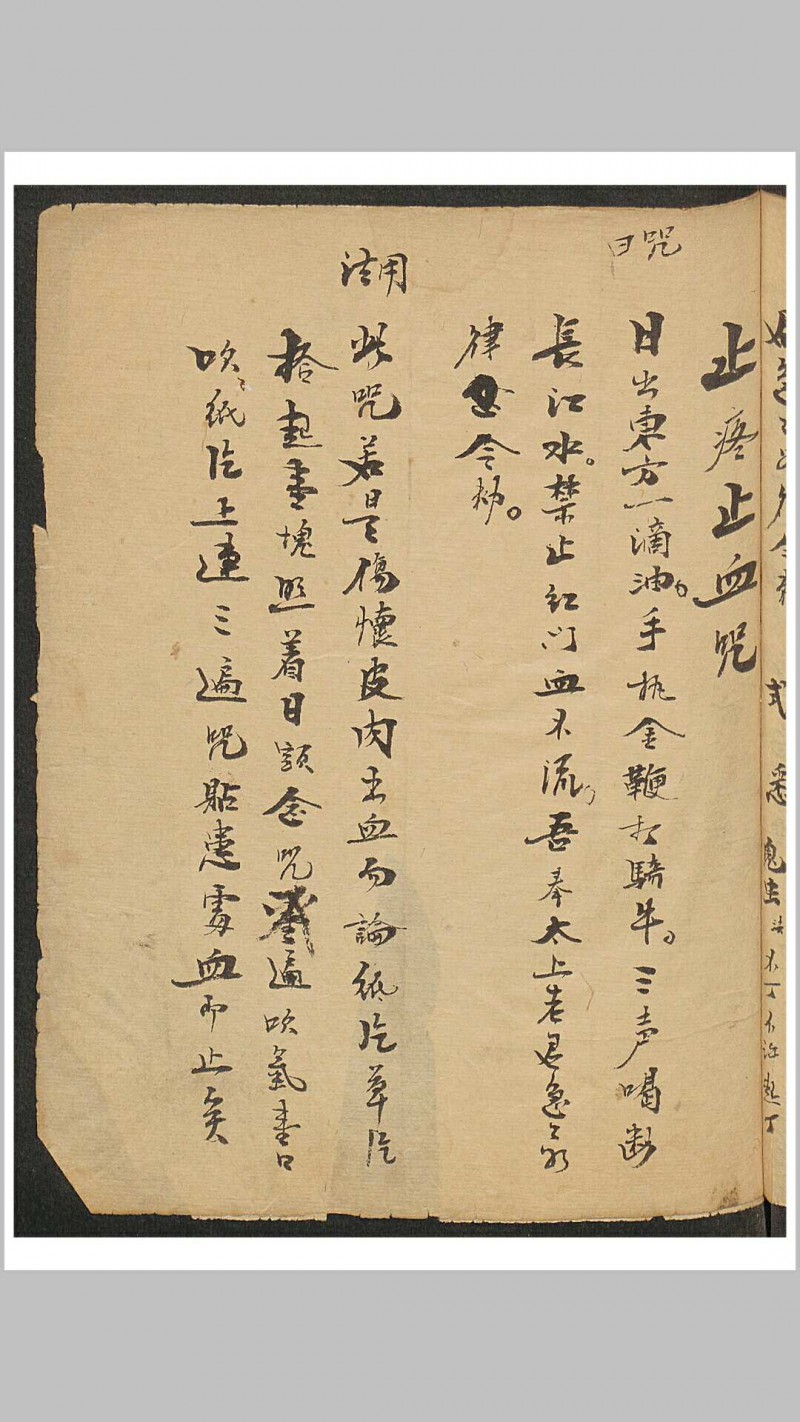 止疼止血咒
咒曰
日出東方一滴油。手执金鞭打騎牛。三声喝断
長江水。禁止红门血不流。吾奉太上老君急急如
律令敕。
用法
此咒若是傷懷皮肉出血勿論紙片草片
拾起壹塊照着日頭念咒遍吹氣壹口
吹吹紙片上連三遍咒貼患處血即止矣